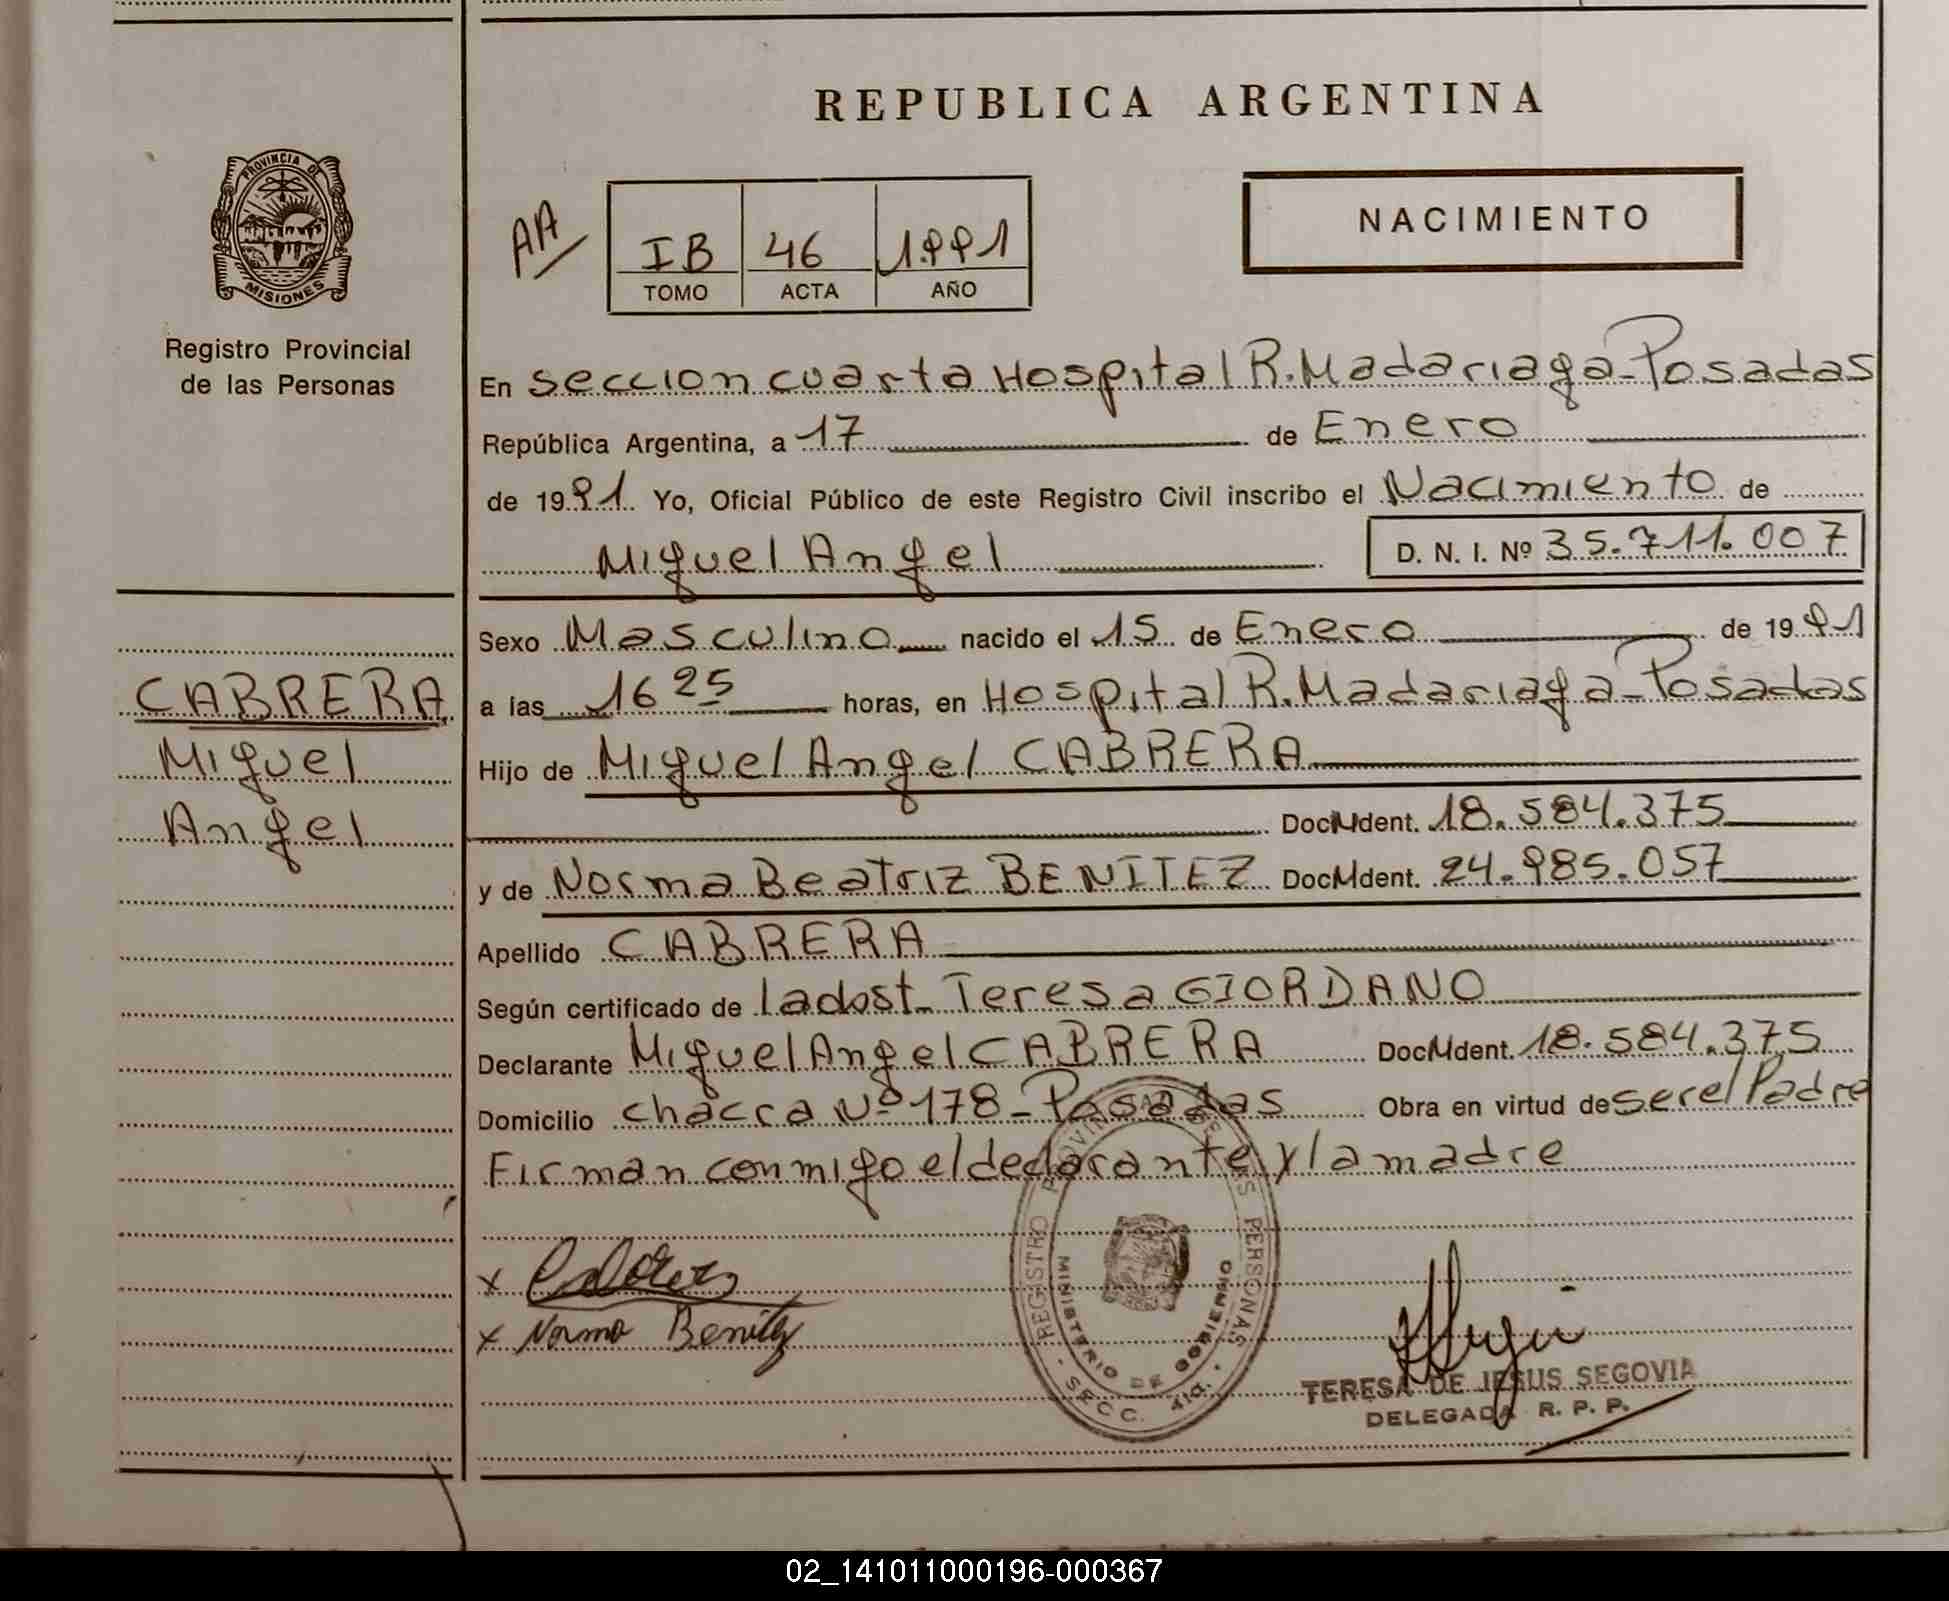 REPUBLICA ARGENTINA
PROVINCIA DE
MISIONES
Registro Provincial
de las Personas
AA
NACIMIENTO
IB 46 1991
TOMO ACTA AÑO
En seccion cuarta Hospital R. Madariaga - Posadas
República Argentina, a 17 de Enero
de 1991. Yo, Oficial Público de este Registro Civil inscribo el Nacimiento de
Miguel Angel D. N. I. Nº 35.711.007
Sexo Masculino nacido el 15 de Enero de 1991
a las 16 25 horas, en Hospital R. Madariaga - Posadas
Hijo de Miguel Angel CABRERA
Doc. Ident. 18.584.375
y de Norma Beatriz BENITEZ Doc. Ident. 24.985.057
Apellido CABRERA
Según certificado de la dost. Teresa GIORDANO
Declarante Miguel Angel CABRERA Doc. Ident. 18.584.375
Domicilio chacra Nº 178 - Posadas Obra en virtud de ser el Padre
Firman conmigo el declarante y la madre
CABRERA
Miguel
Angel
x
x Norma Benitez
REGISTRO PROVINCIAL DE LAS PERSONAS
MINISTERIO DE GOBIERNO
SECC. 4ta.
TERESA DE JESUS SEGOVIA
DELEGADA R. P. P.
02_141011000196-000367